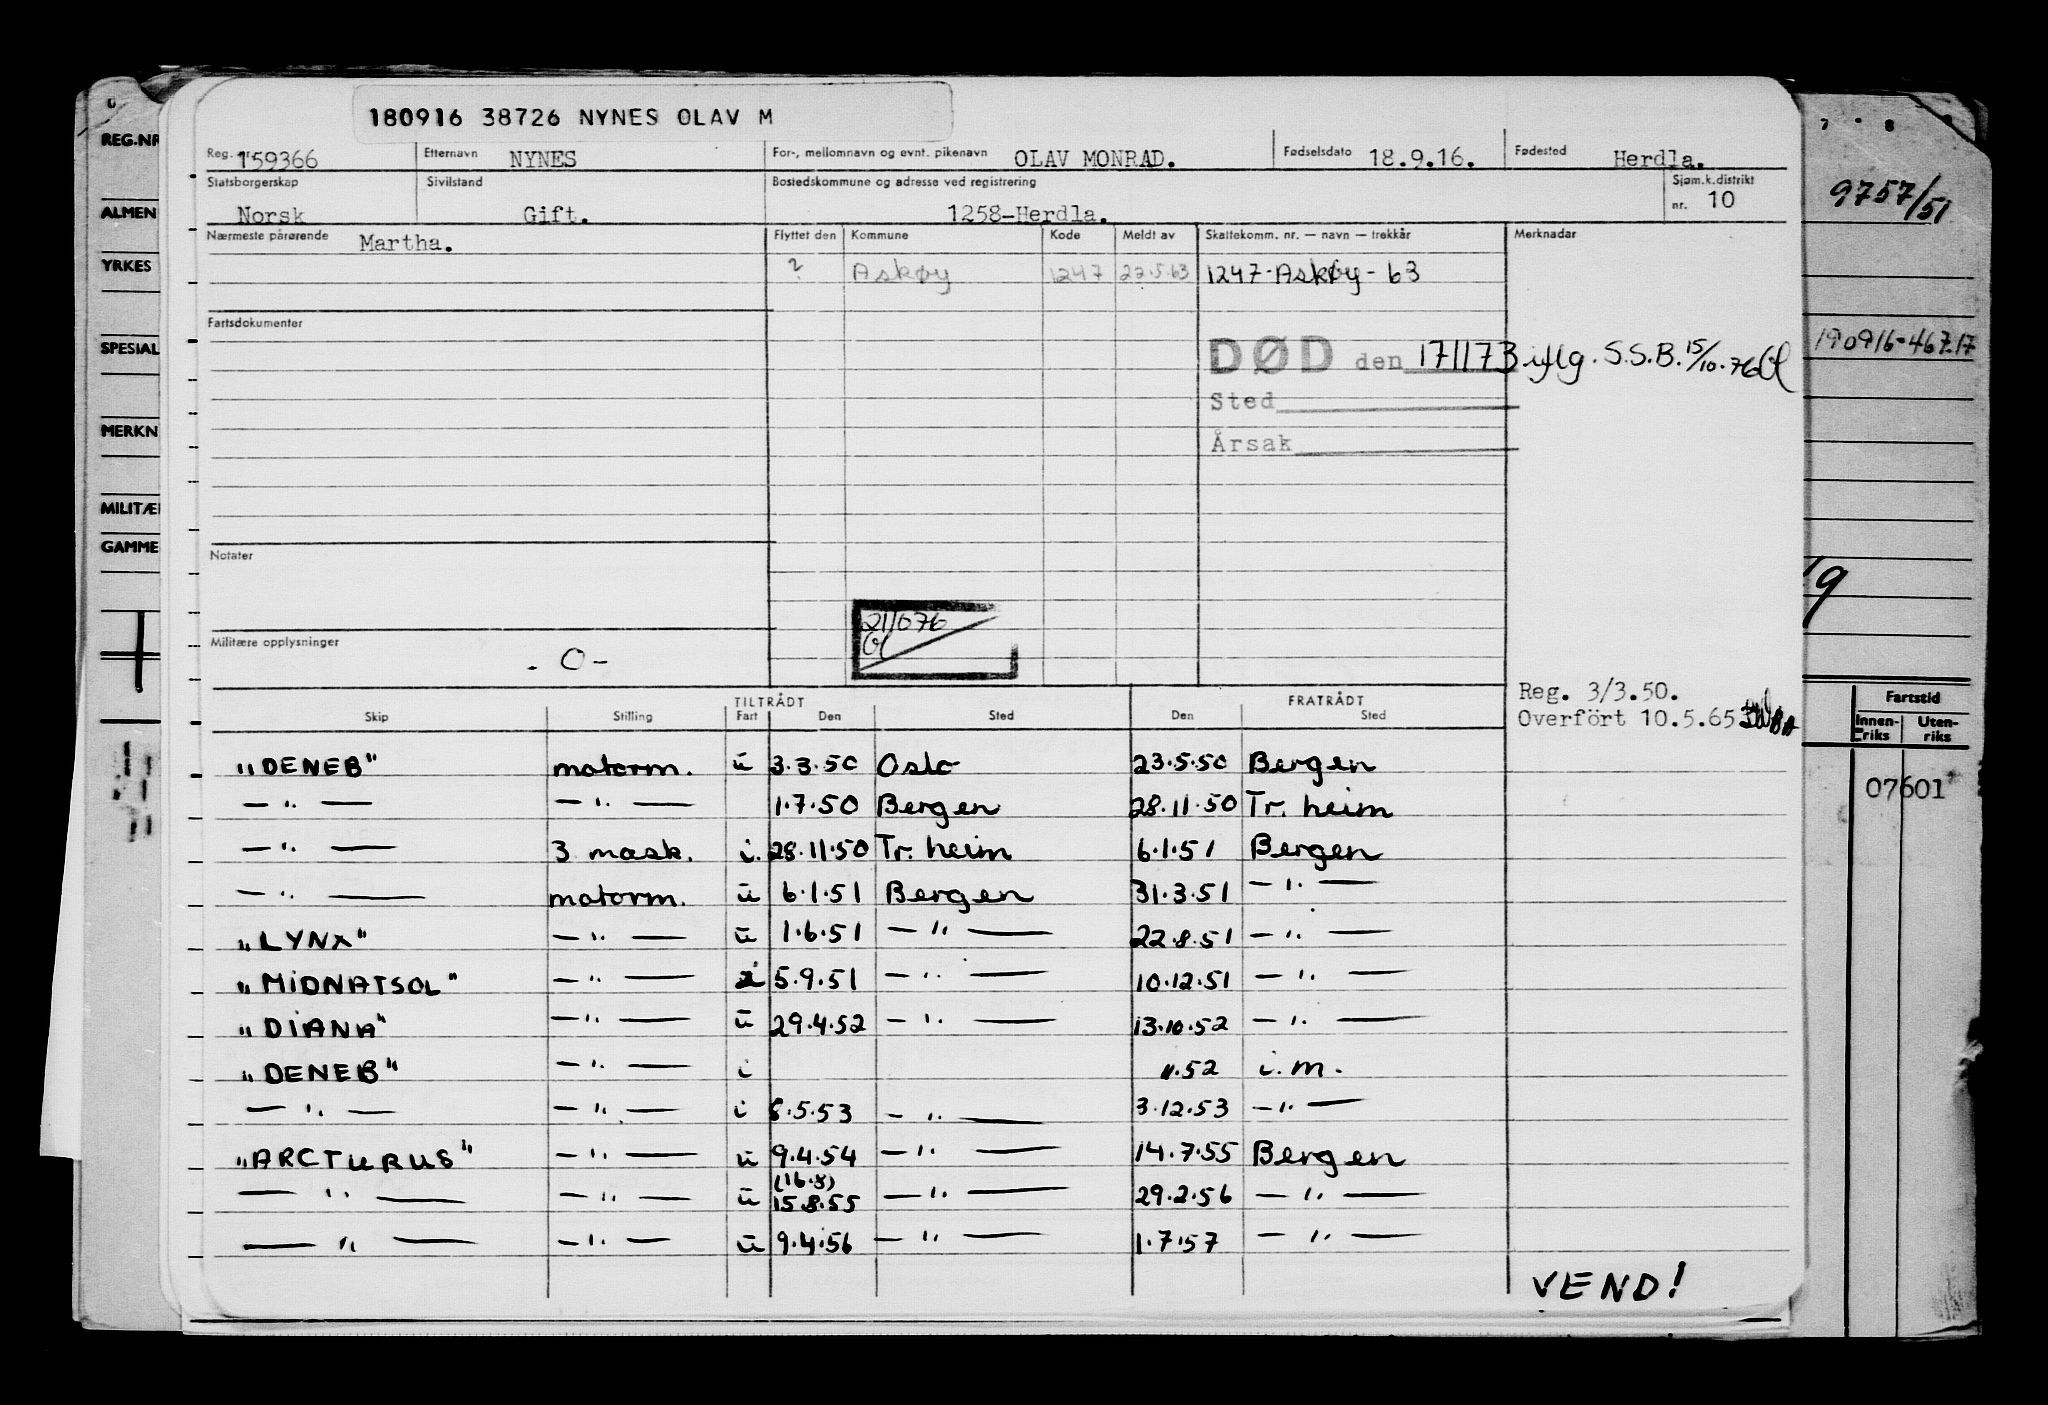 180916 38726 NYNES OLAV M
Reg. nr. 159366 Etternavn NYNES For-, mellomnavn og evnt. pikenavn OLAV MONRAD. Fødselsdato 18.9.16. Fødested Herdla.
Statsborgerskap Norsk Sivilstand Gift. Bostedskommune og adresse ved registrering 1258-Herdla. Sjøm.k.distrikt nr. 10
Nærmeste pårørende Martha. Flyttet den Kommune Kode Meldt av Skattekomm. nr. — navn — trekkår Merknadar
? Askøy 1247 22.5.63 1247-Askøy-63
Fartsdokumenter
DØD den 171173 iflg. S.S.B. 15/10.76
Sted
Årsak
Notater
211076
Militære opplysninger
. O -
Reg. 3/3.50.
Overfört 10.5.65
TILTRÅDT FRATRÅDT
Skip Stilling Fart Den Sted Den Sted
"DENEB" motorm. u 3.3.50 Oslo 23.5.50 Bergen
— " — — " — 1.7.50 Bergen 28.11.50 Tr. heim
— " — 3 mask. i. 28.11.50 Tr. heim 6.1.51 Bergen
— " — motorm. u 6.1.51 Bergen 31.3.51 — " —
"LYNX" — " — u 1.6.51 — " — 22.8.51 — " —
"MIDNATSOL" — " — i 5.9.51 — " — 10.12.51 — " —
"DIANA" — " — u 29.4.52 — " — 13.10.52 — " —
"DENEB" — " — i 11.52 i.m.
— " — — " — i 8.5.53 — " — 3.12.53 — " —
"ARCTURUS" — " — u 9.4.54 — " — 14.7.55 Bergen
— " — — " — u (16.8) 15.8.55 — " — 29.2.56 — " —
— " — — " — u 9.4.56 — " — 1.7.57 — " —
VEND!
REG.NR
ALMEN
YRKES
SPESIAL
MERKN
MILITÆ
GAMME
7 . 8
9757/51
190916-467.17
19
Fartstid
Innen-riks Uten-riks
07601